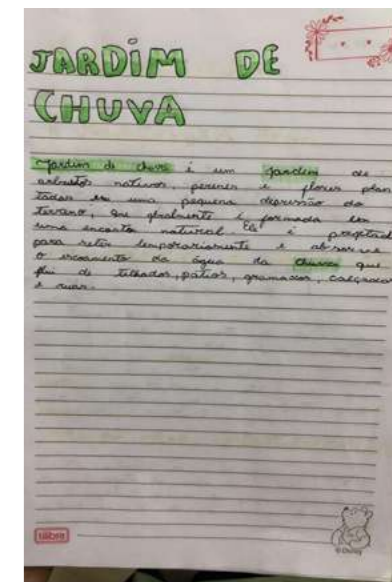 JARDIM DE
CHUVA
Jardim de chuva é um jardim de
arbustos nativos, perenes e flores plan
tadas em uma pequena depressão do
terreno, que geralmente é formada em
uma encosta natural. Ele é projetado
para reter temporariamente e absorver
o escoamento da água da chuva que
flui de telhados, pátios, gramados, calçadas
e ruas.
tilibra
© Disney